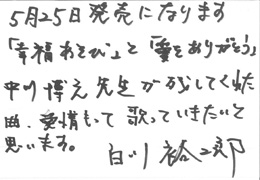 5月25日発売になります
「幸福あそび」と「愛をありがとう」
中川博之先生が残してくれた
曲、愛情もって歌っていきたいと
思います。 白川裕二郎